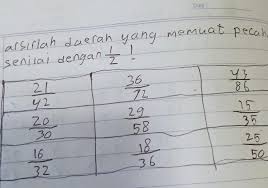 arsirlah daerah yang memuat pecah
senilai dengan 1/2 !
21/42 36/72 43/86
20/30 29/58 15/35
16/32 18/36 25/50